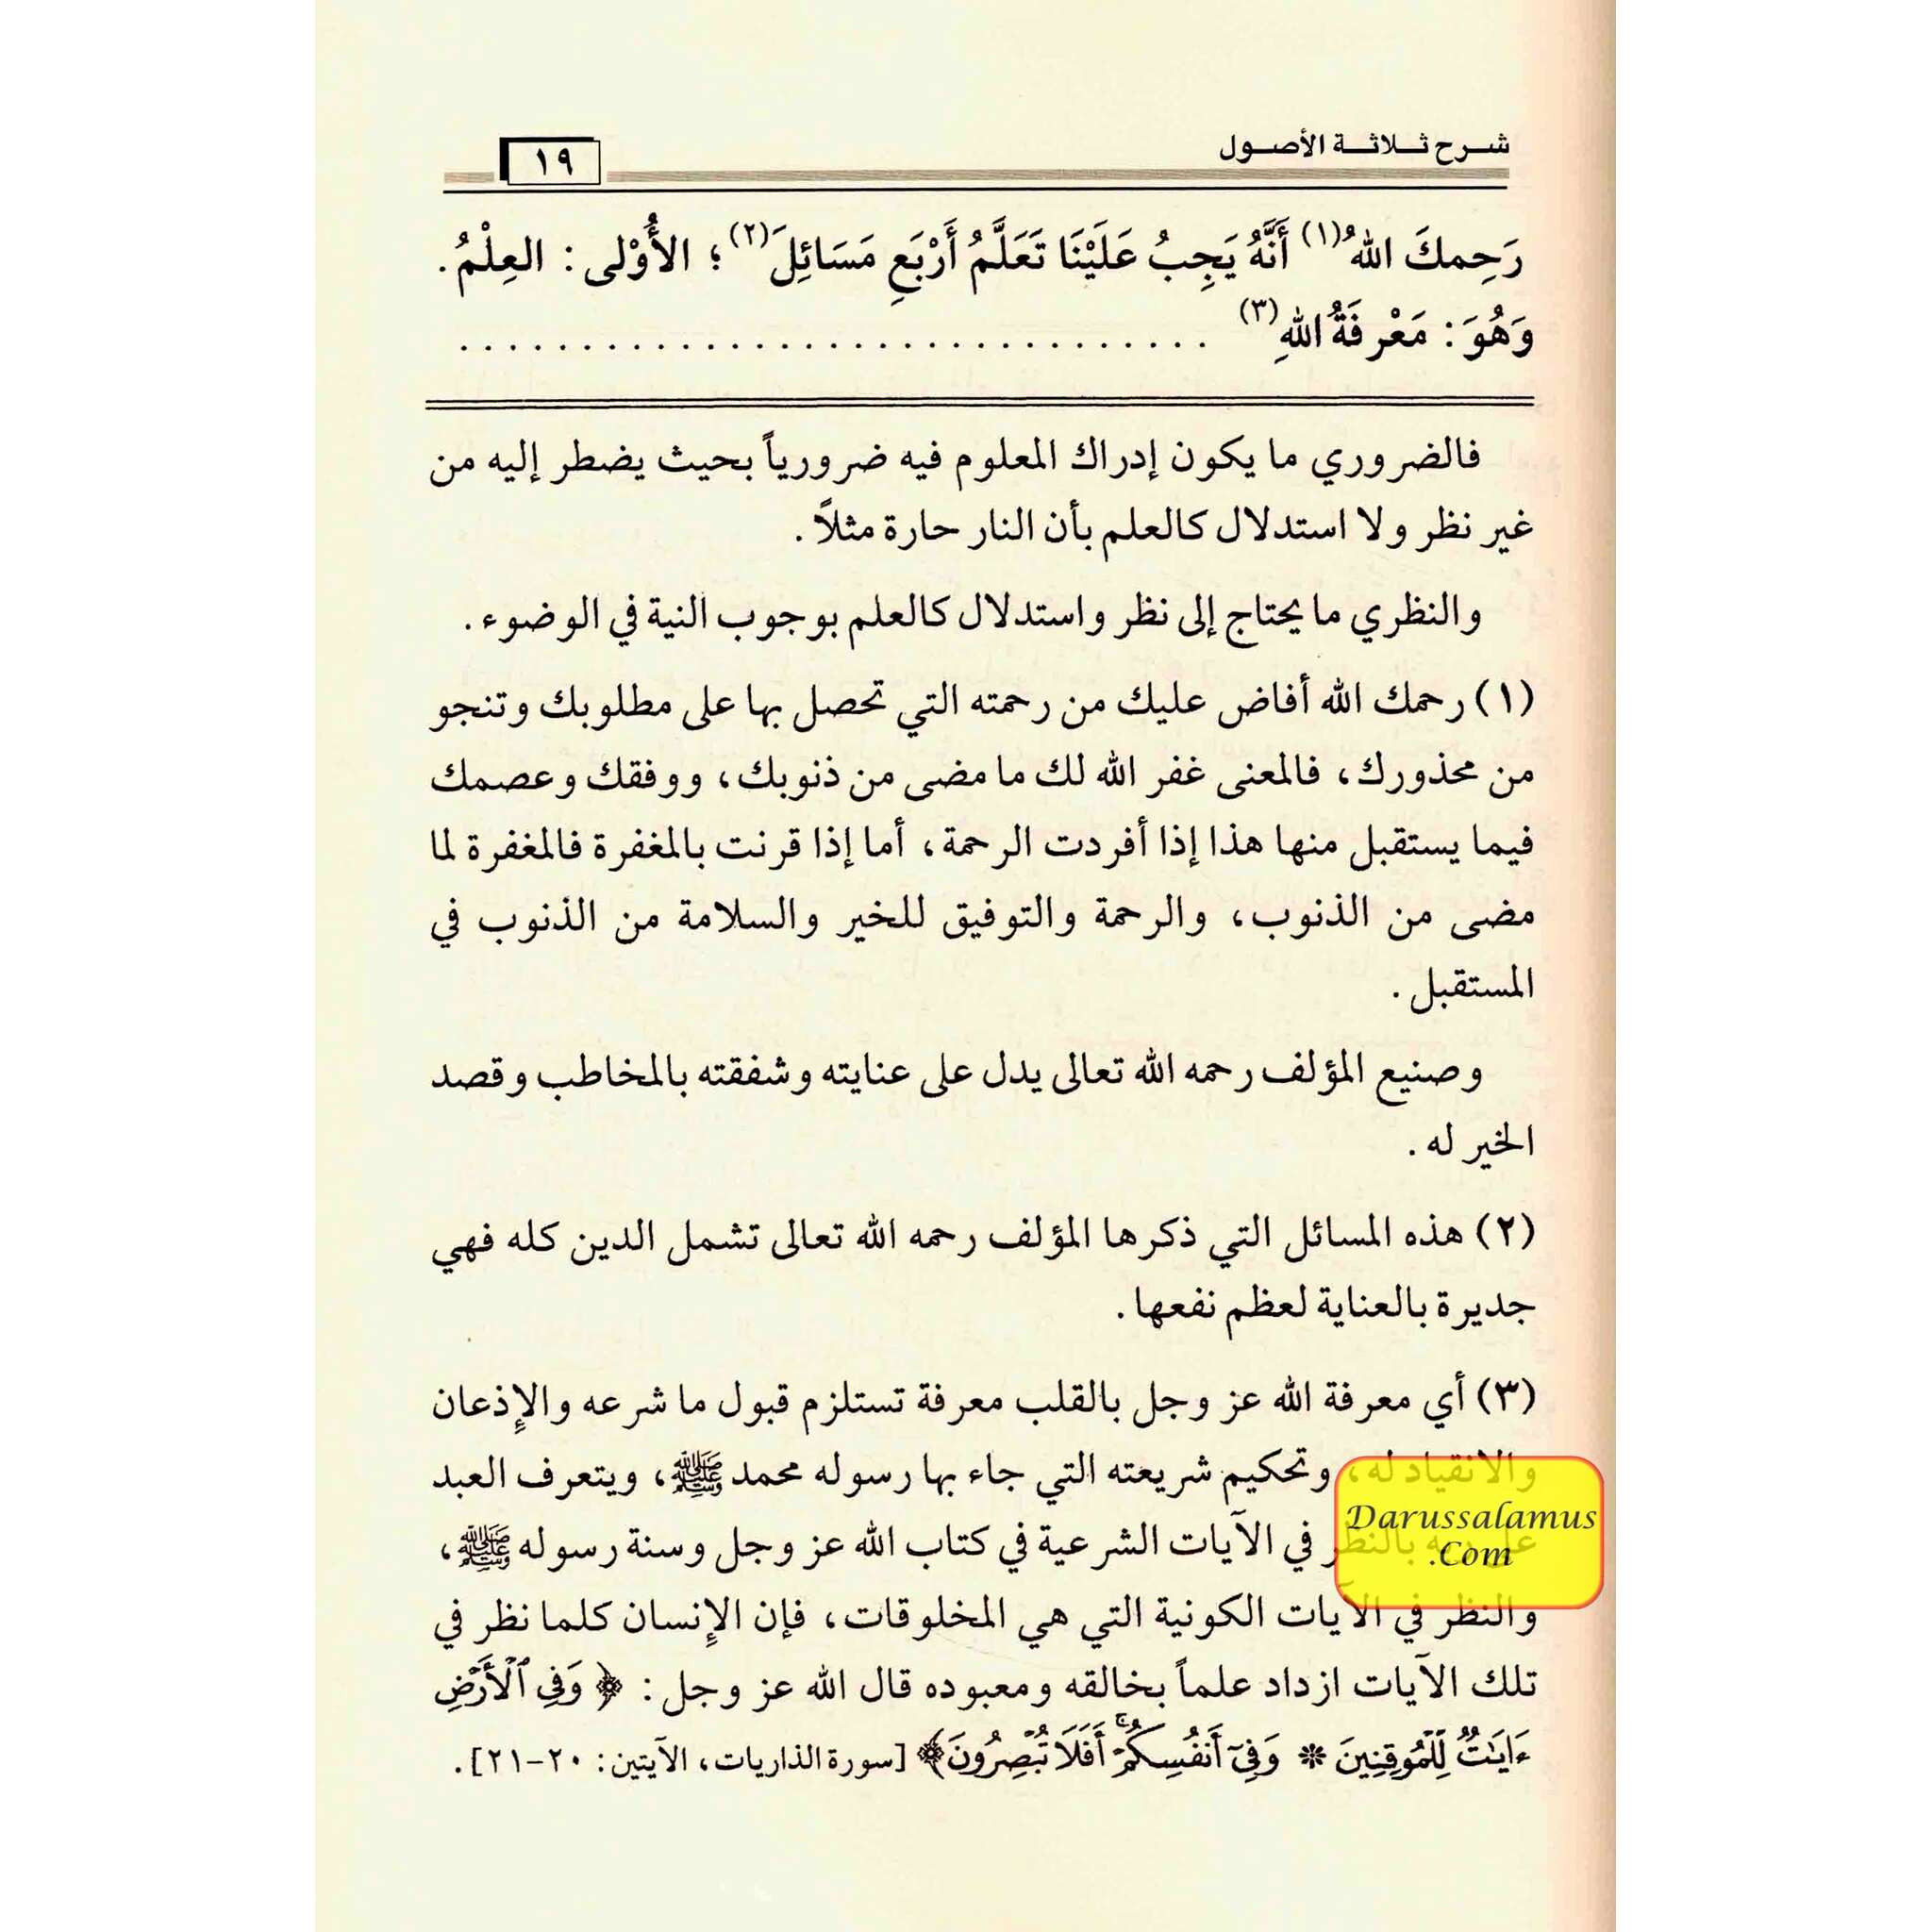 شرح ثلاثة الأصول
١٩
رَحِمكَ اللهُ(١) أَنَّهُ يَجِبُ عَلَيْنَا تَعَلَّمُ أَرْبَعِ مَسَائِلَ(٢)؛ الأُوْلى: العِلْمُ.
وَهُوَ: مَعْرِفَةُ اللهِ(٣) ..............................
فالضروري ما يكون إدراك المعلوم فيه ضرورياً بحيث يضطر إليه من
غير نظر ولا استدلال كالعلم بأن النار حارة مثلاً.
والنظري ما يحتاج إلى نظر واستدلال كالعلم بوجوب النية في الوضوء.
(١) رحمك الله أفاض عليك من رحمته التي تحصل بها على مطلوبك وتنجو
من محذورك، فالمعنى غفر الله لك ما مضى من ذنوبك، ووفقك وعصمك
فيما يستقبل منها هذا إذا أفردت الرحمة، أما إذا قرنت بالمغفرة فالمغفرة لما
مضى من الذنوب، والرحمة والتوفيق للخير والسلامة من الذنوب في
المستقبل.
وصنيع المؤلف رحمه الله تعالى يدل على عنايته وشفقته بالمخاطب وقصد
الخير له.
(٢) هذه المسائل التي ذكرها المؤلف رحمه الله تعالى تشمل الدين كله فهي
جديرة بالعناية لعظم نفعها.
(٣) أي معرفة الله عز وجل بالقلب معرفة تستلزم قبول ما شرعه والإذعان
والانقياد له، وتحكيم شريعته التي جاء بها رسوله محمد ﷺ، ويتعرف العبد
بالنظر في الآيات الشرعية في كتاب الله عز وجل وسنة رسوله ﷺ،
والنظر في الآيات الكونية التي هي المخلوقات، فإن الإنسان كلما نظر في
تلك الآيات ازداد علماً بخالقه ومعبوده قال الله عز وجل: ﴿وَفِي ٱلْأَرْضِ
ءَايَٰتٌ لِّلْمُوقِنِينَ * وَفِيٓ أَنفُسِكُمْۚ أَفَلَا تُبْصِرُونَ﴾ [سورة الذاريات، الآيتين: ٢٠-٢١].
Darussalamus
.Com